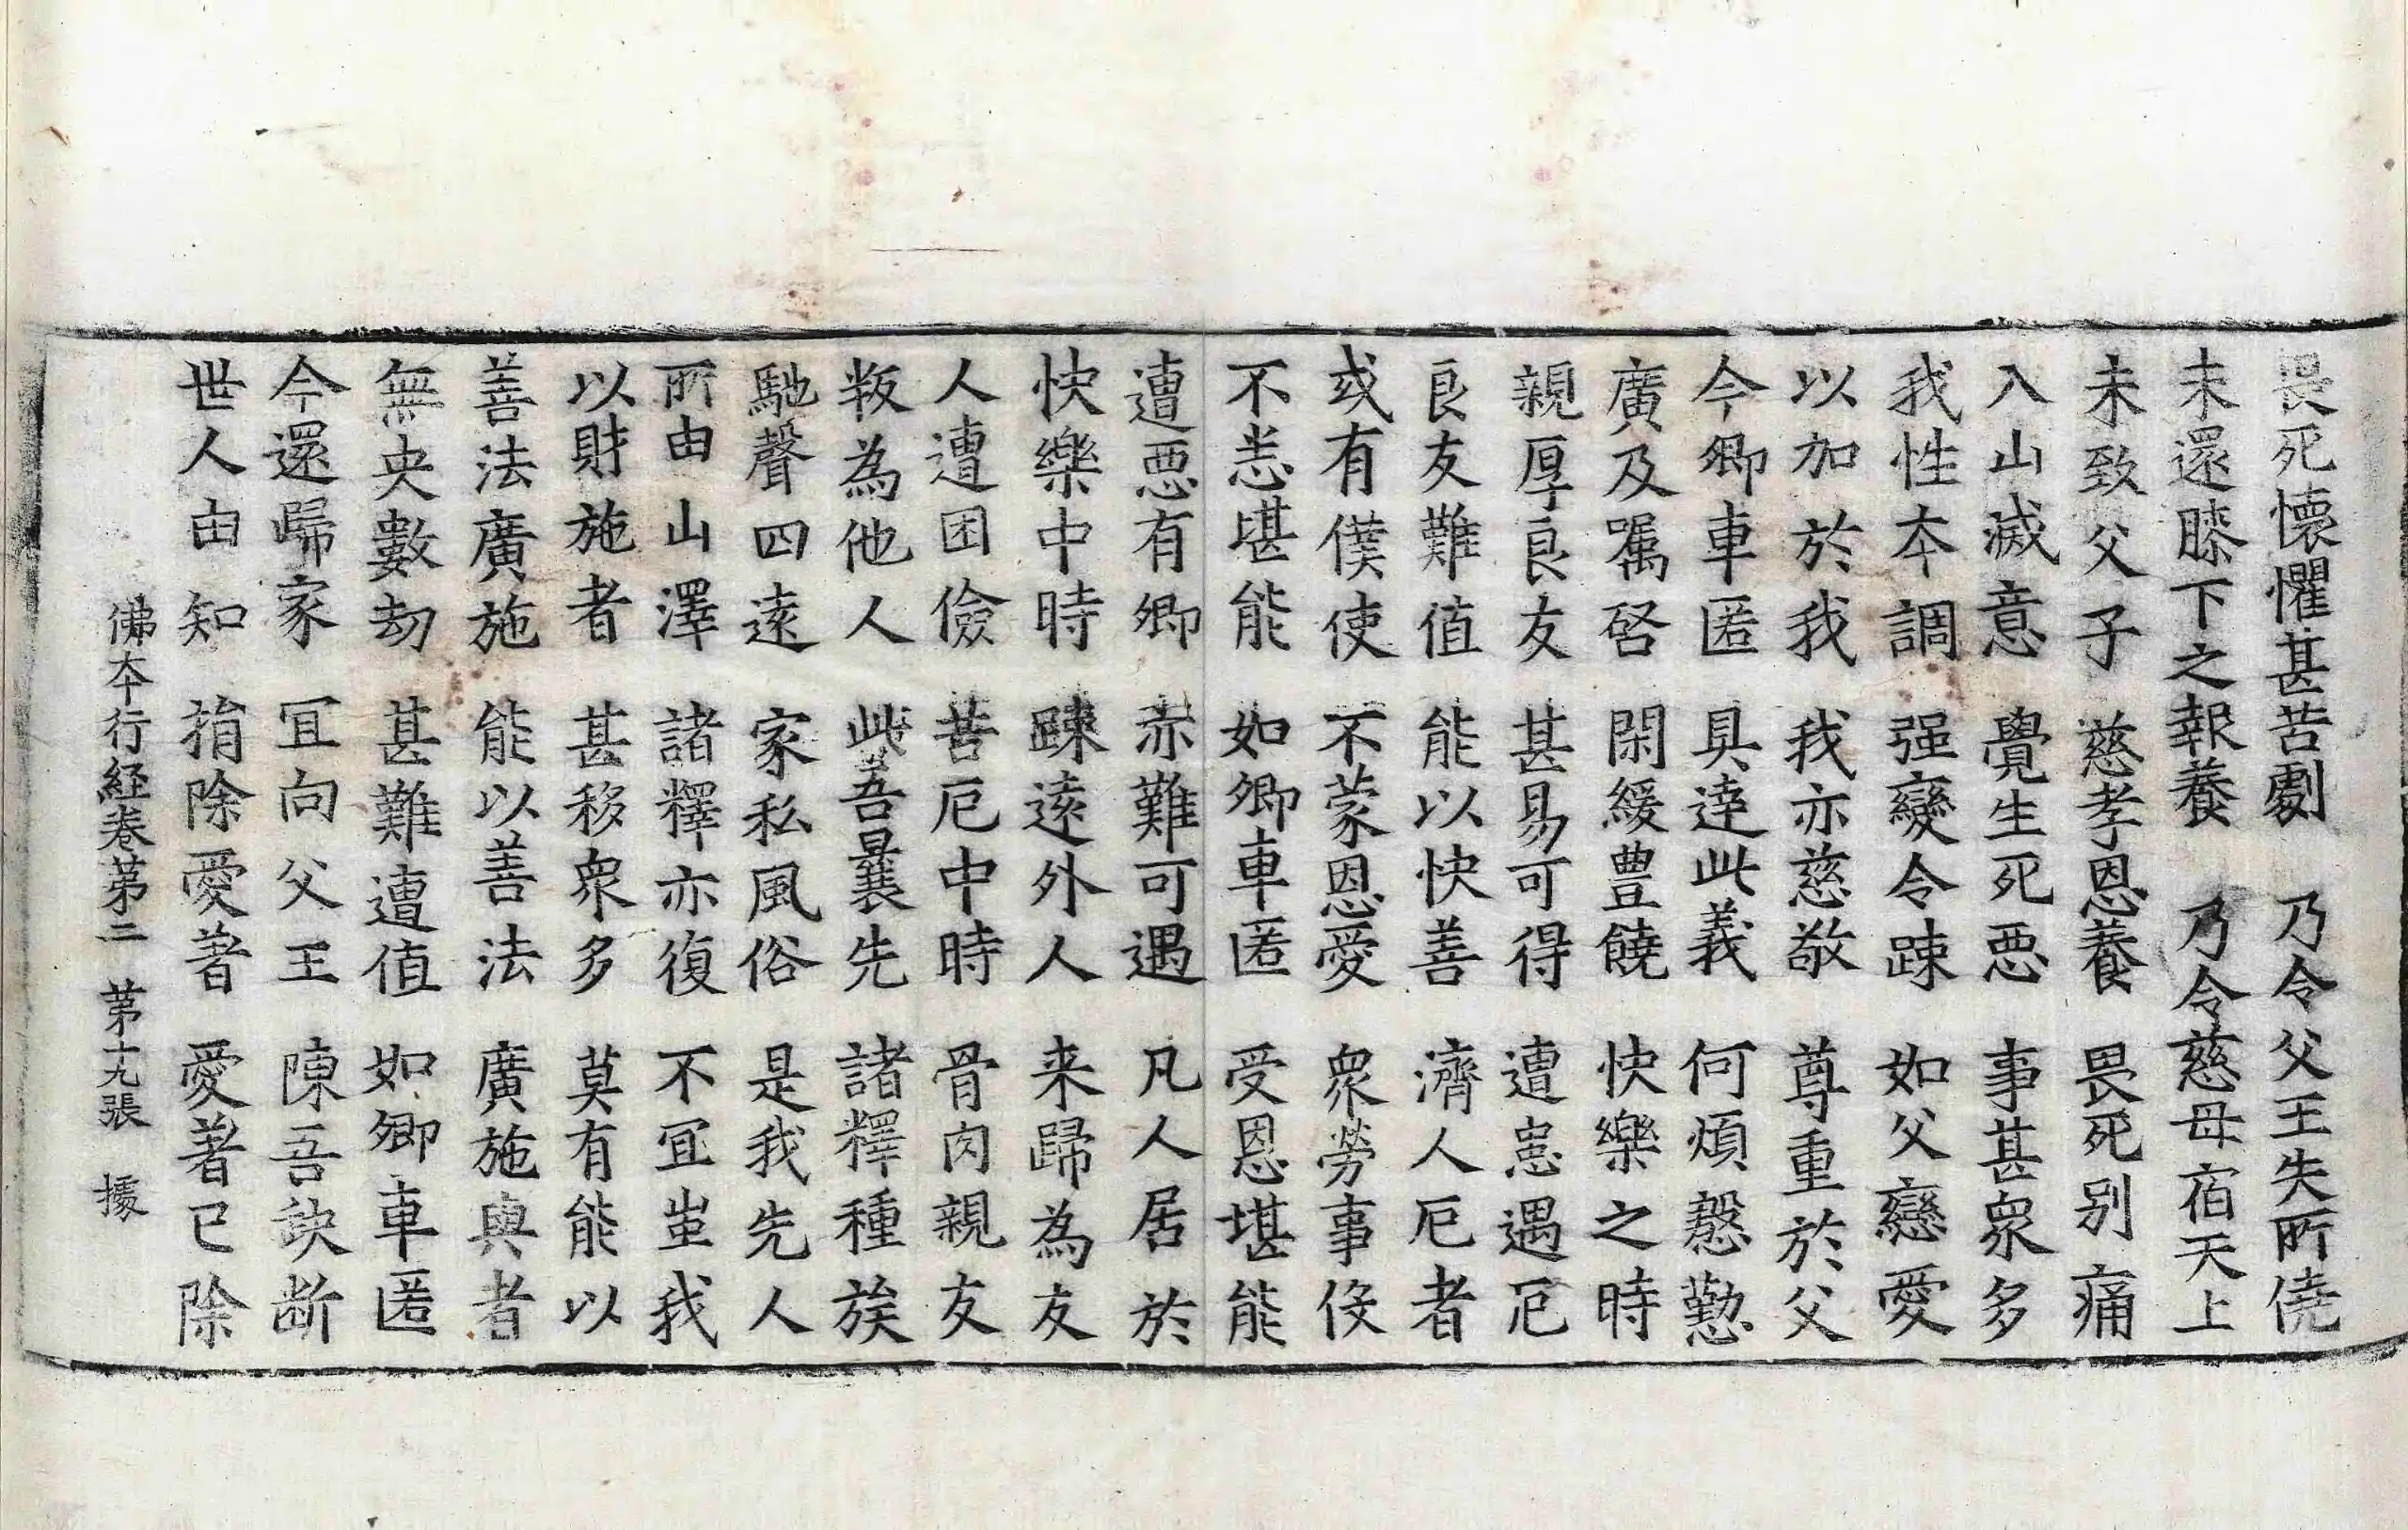 畏死懷懼甚苦劇　乃令父王失所僥
未還膝下之報養　乃令慈母宿天上
未致父子　慈孝恩養　畏死別痛
入山滅意　覺生死惡　事甚衆多
我性本調　强變令踈　如父戀愛
以加於我　我亦慈敬　尊重於父
今卿車匿　具達此義　何煩慇懃
廣及囑咎　閑緩豊饒　快樂之時
親厚良友　甚易可得　遭患遇厄
良友難值　能以快善　濟人厄者
或有僕使　不蒙恩愛　衆勞事佞
不恙堪能　如卿車匿　受恩堪能
遭惡有卿　亦難可遇　凡人居於
快樂中時　踈遠外人　来歸為友
人遭困儉　苦厄中時　骨肉親友
叛為他人　此吾曩先　諸釋種族
馳聲四遠　家私風俗　是我先人
所由山澤　諸釋亦復　不宜蚩我
以財施者　甚移衆多　莫有能以
善法廣施　能以善法　廣施與者
無央數劫　甚難遭值　如卿車匿
今還歸家　宜向父王　陳吾訣断
世人由知　捐除愛著　愛著已除
佛本行経卷第二　第十九張　據